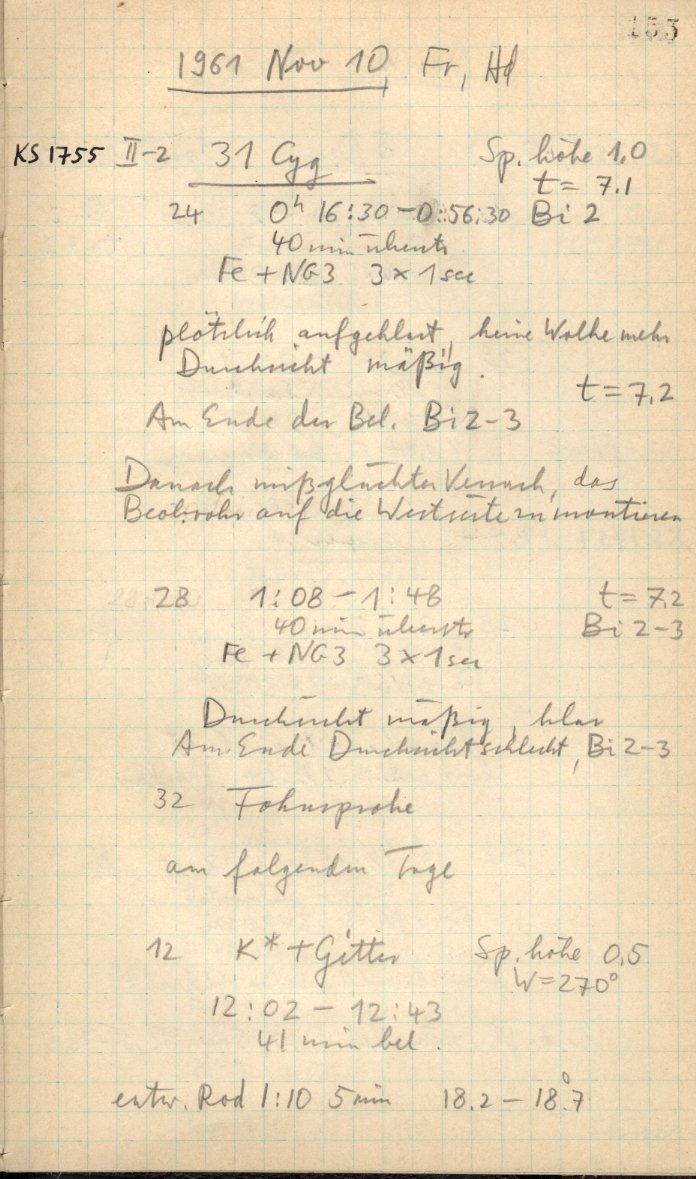 153
1961 Nov 10, Fr, Hd
KS 1755 II-2 31 Cyg Sp. höhe 1,0
t = 7.1
24 0h 16:30 - 0:56:30 Bi 2
40 min überstr.
Fe + NG3 3 × 1 sec
plötzlich aufgeklart, keine Wolke mehr
Durchsicht mäßig.
t = 7,2
Am Ende der Bel. Bi 2-3
Danach mißglückter Versuch, das
Beob.rohr auf die Westseite zu montieren
28 1:08 - 1:48 t = 7.2
40 min überstr Bi 2-3
Fe + NG3 3 × 1 sec
Durchsicht mäßig, klar
Am Ende Durchsicht schlecht, Bi 2-3
32 Fokusprobe
am folgenden Tage
12 K* + Gitter Sp. höhe 0,5
W = 270°
12:02 - 12:43
41 min bel.
entw. Rod 1:10 5 min 18.2 - 18°.7